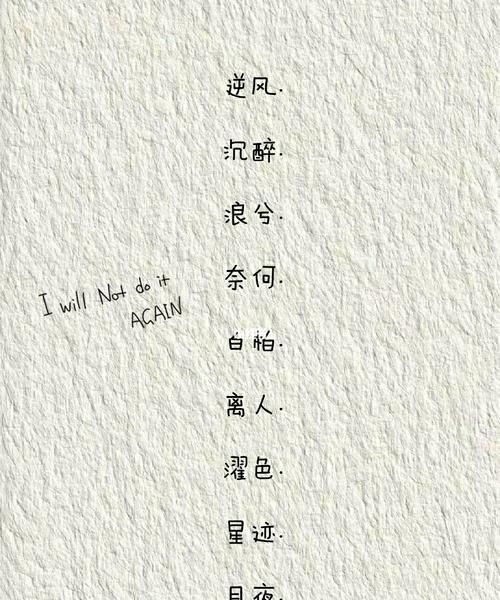 逆风.
沉醉.
浪兮.
奈何.
I will Not do it
AGAIN
离人.
濯色.
星迹.